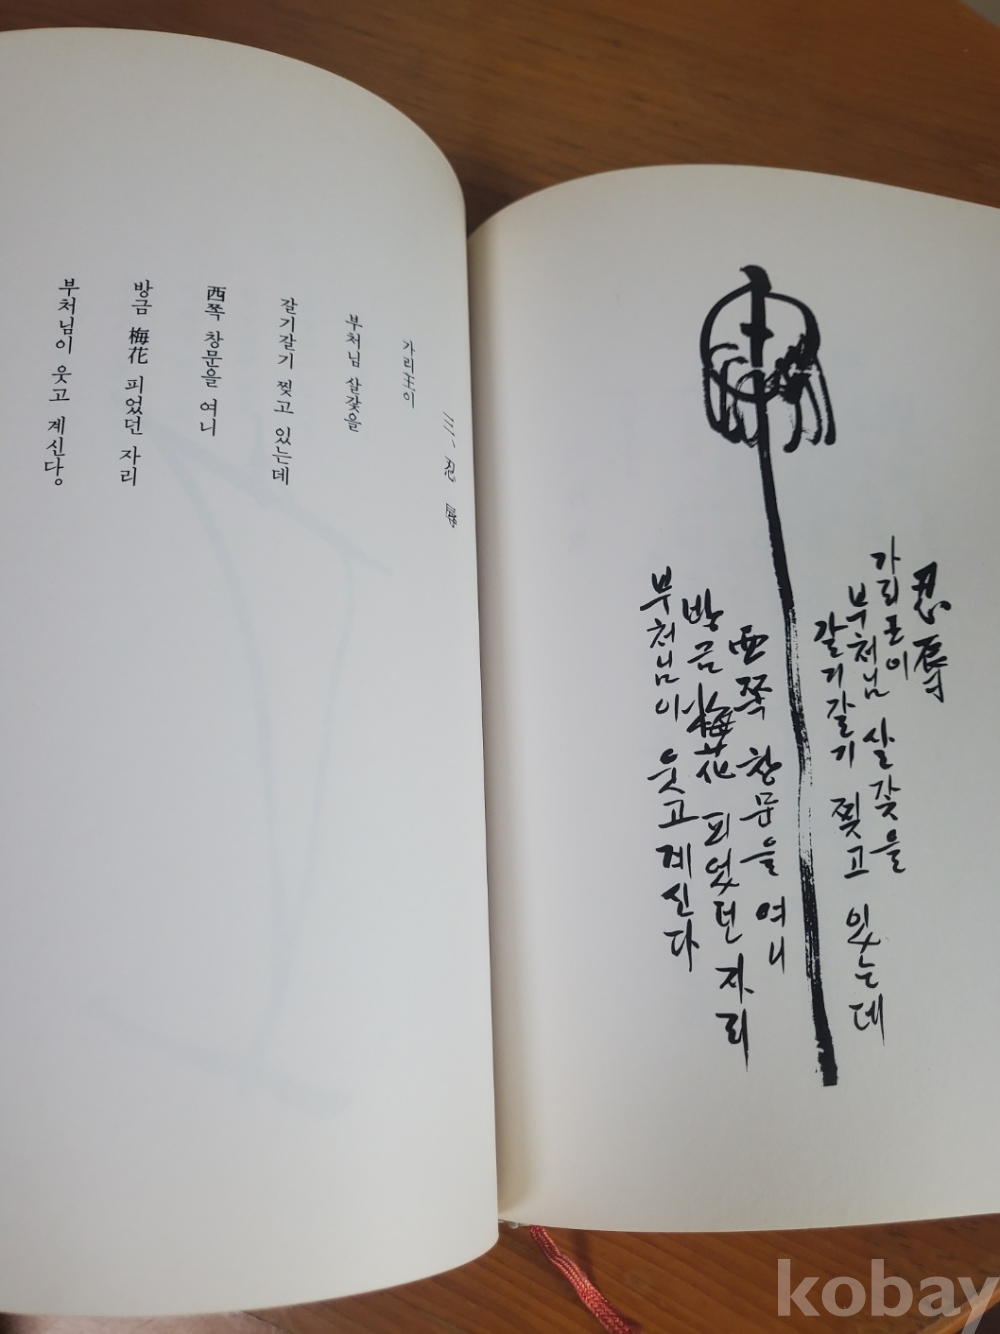 三、忍辱
가리王이
부처님 살갗을
갈기갈기 찢고 있는데
西쪽 창문을 여니
방금 梅花 피었던 자리
부처님이 웃고 계신다。
忍辱
가리王이
부처님 살갗을
갈기갈기 찢고 있는데
西쪽 창문을 여니
방금 梅花 피었던 자리
부처님이 웃고 계신다
kobay